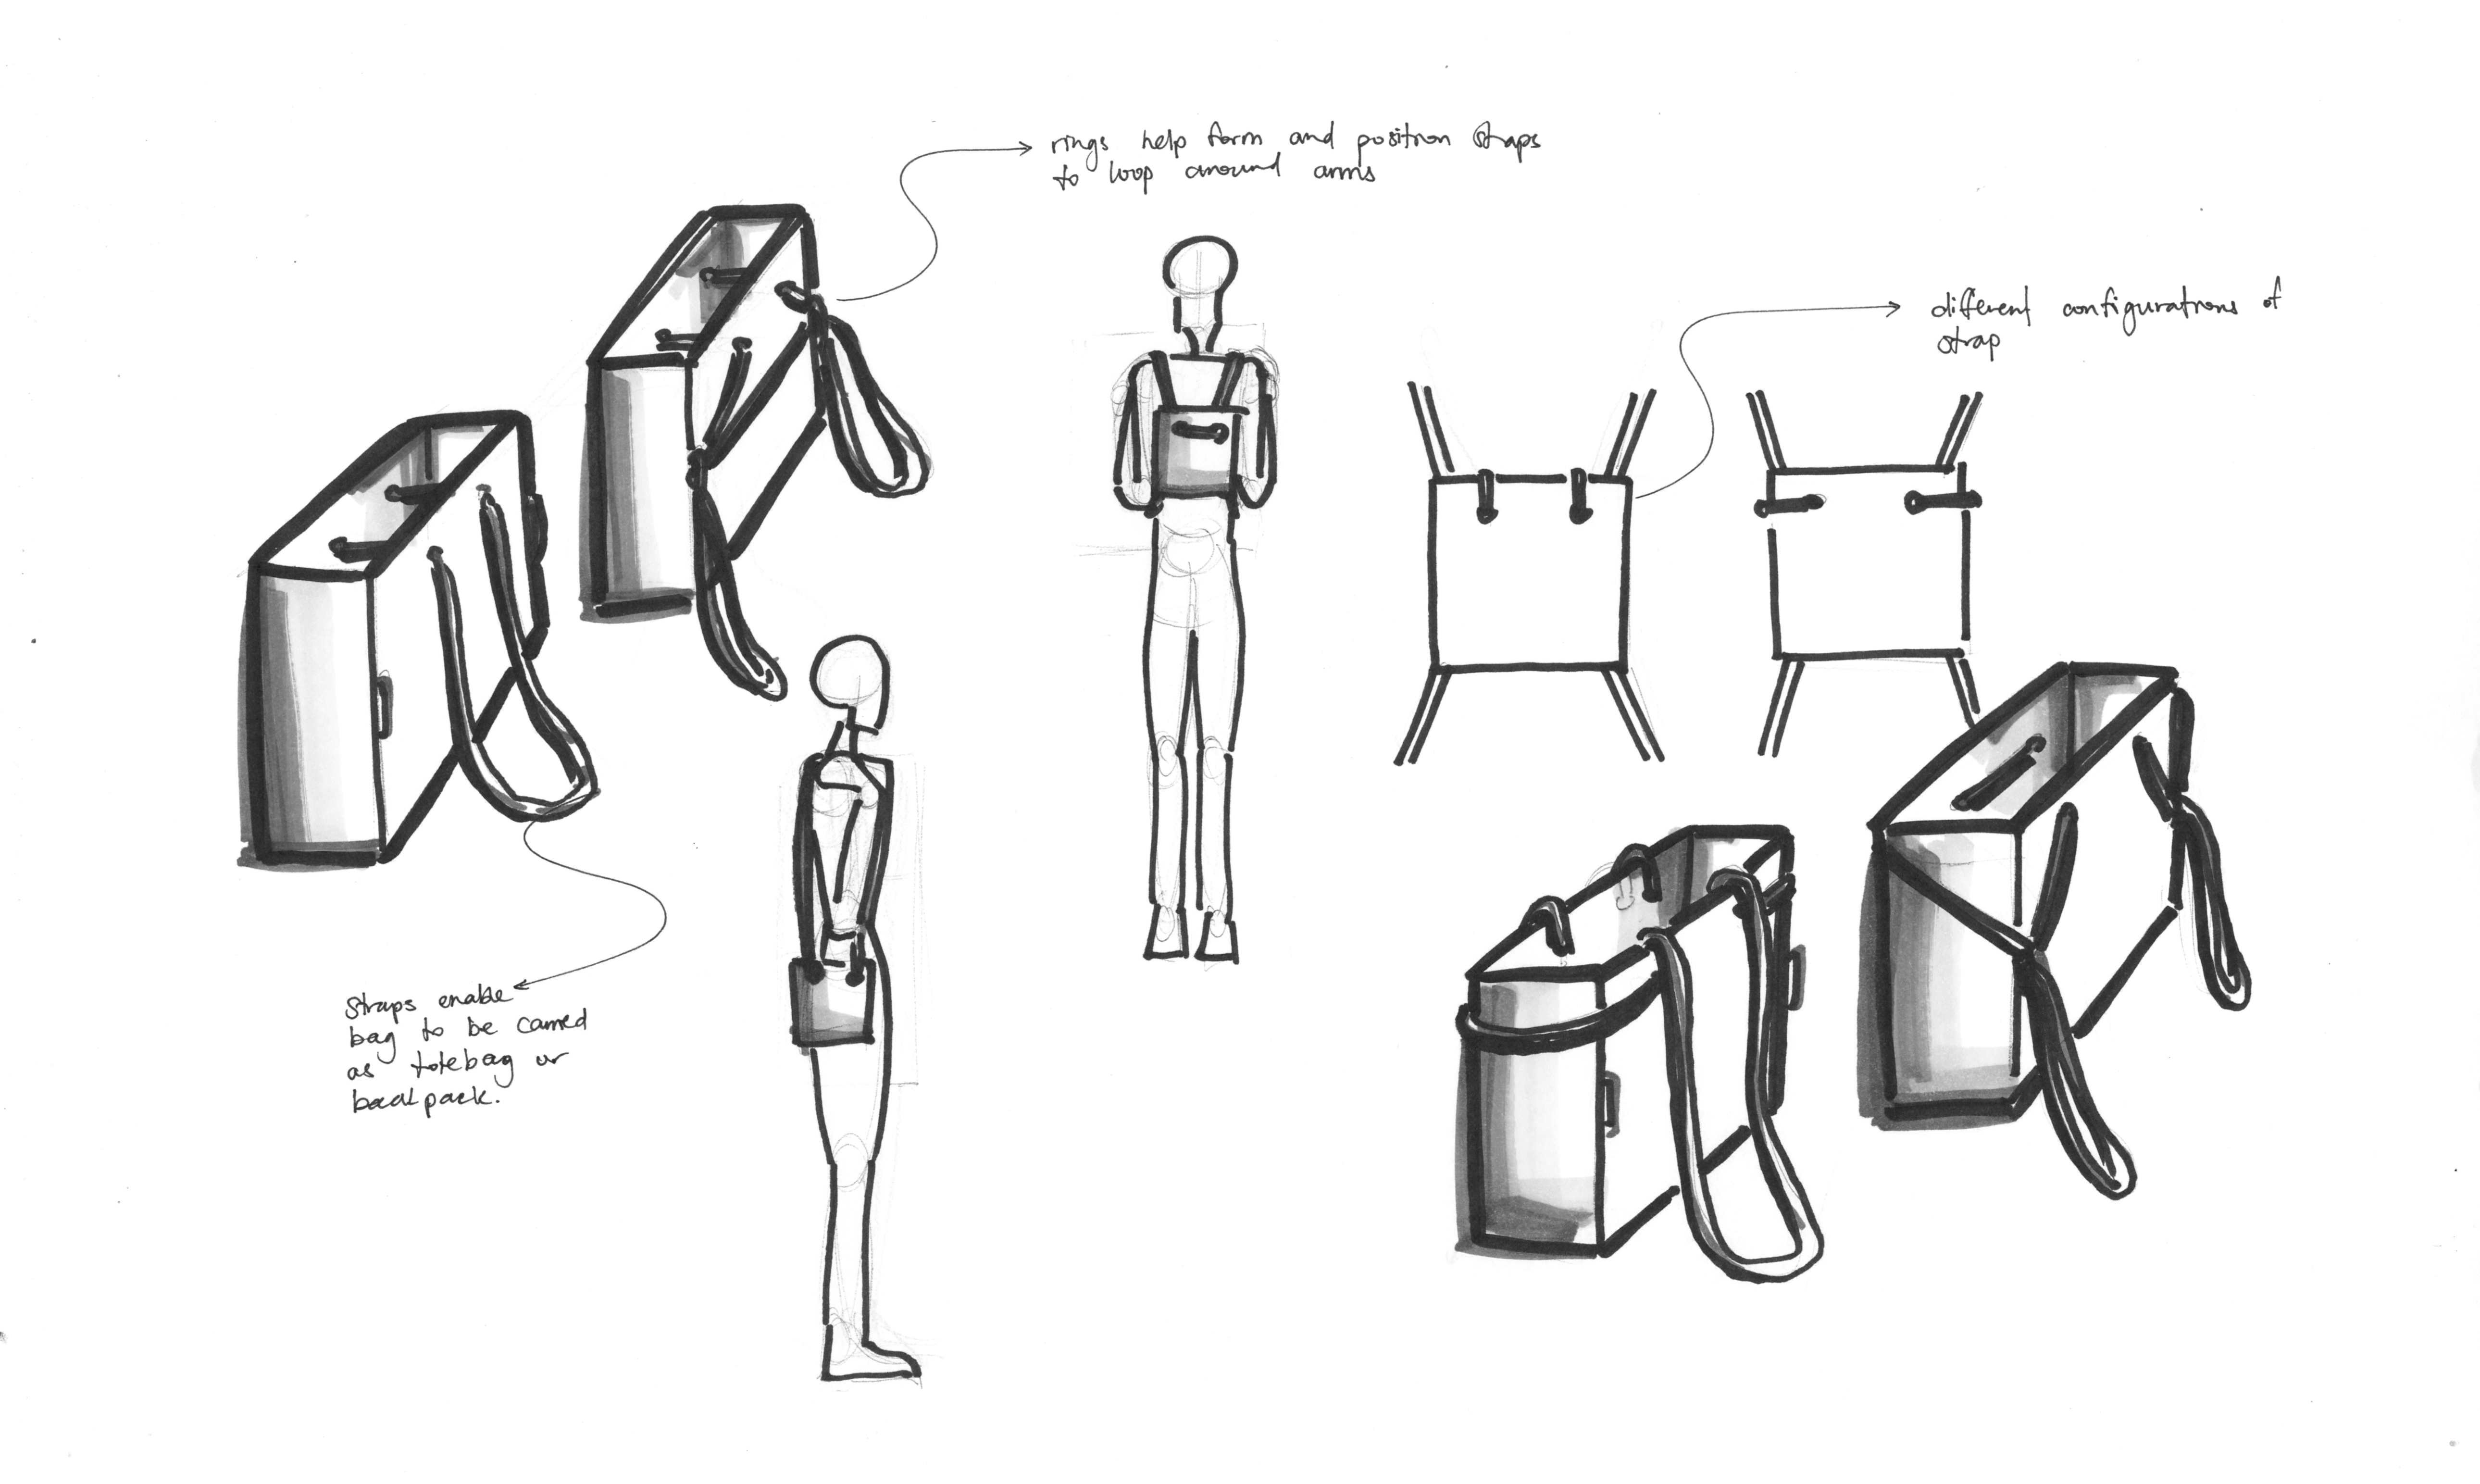 rings help form and position straps
to loop around arms
different configurations of
strap
Straps enable
bag to be carried
as totebag or
backpack.